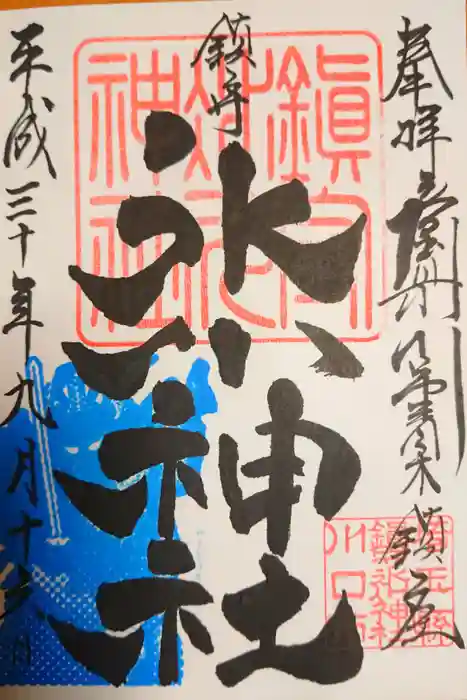 奉拝
鎮座
鎮守
氷川神社
平成三十年九月十六日
鎮守氷川神社
埼玉県
川口市
鎮守氷川神社